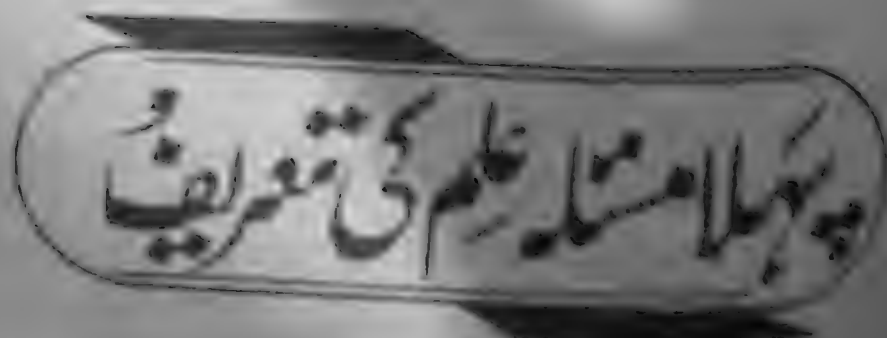 پہلا مسئلہ عِلم کی تعریف